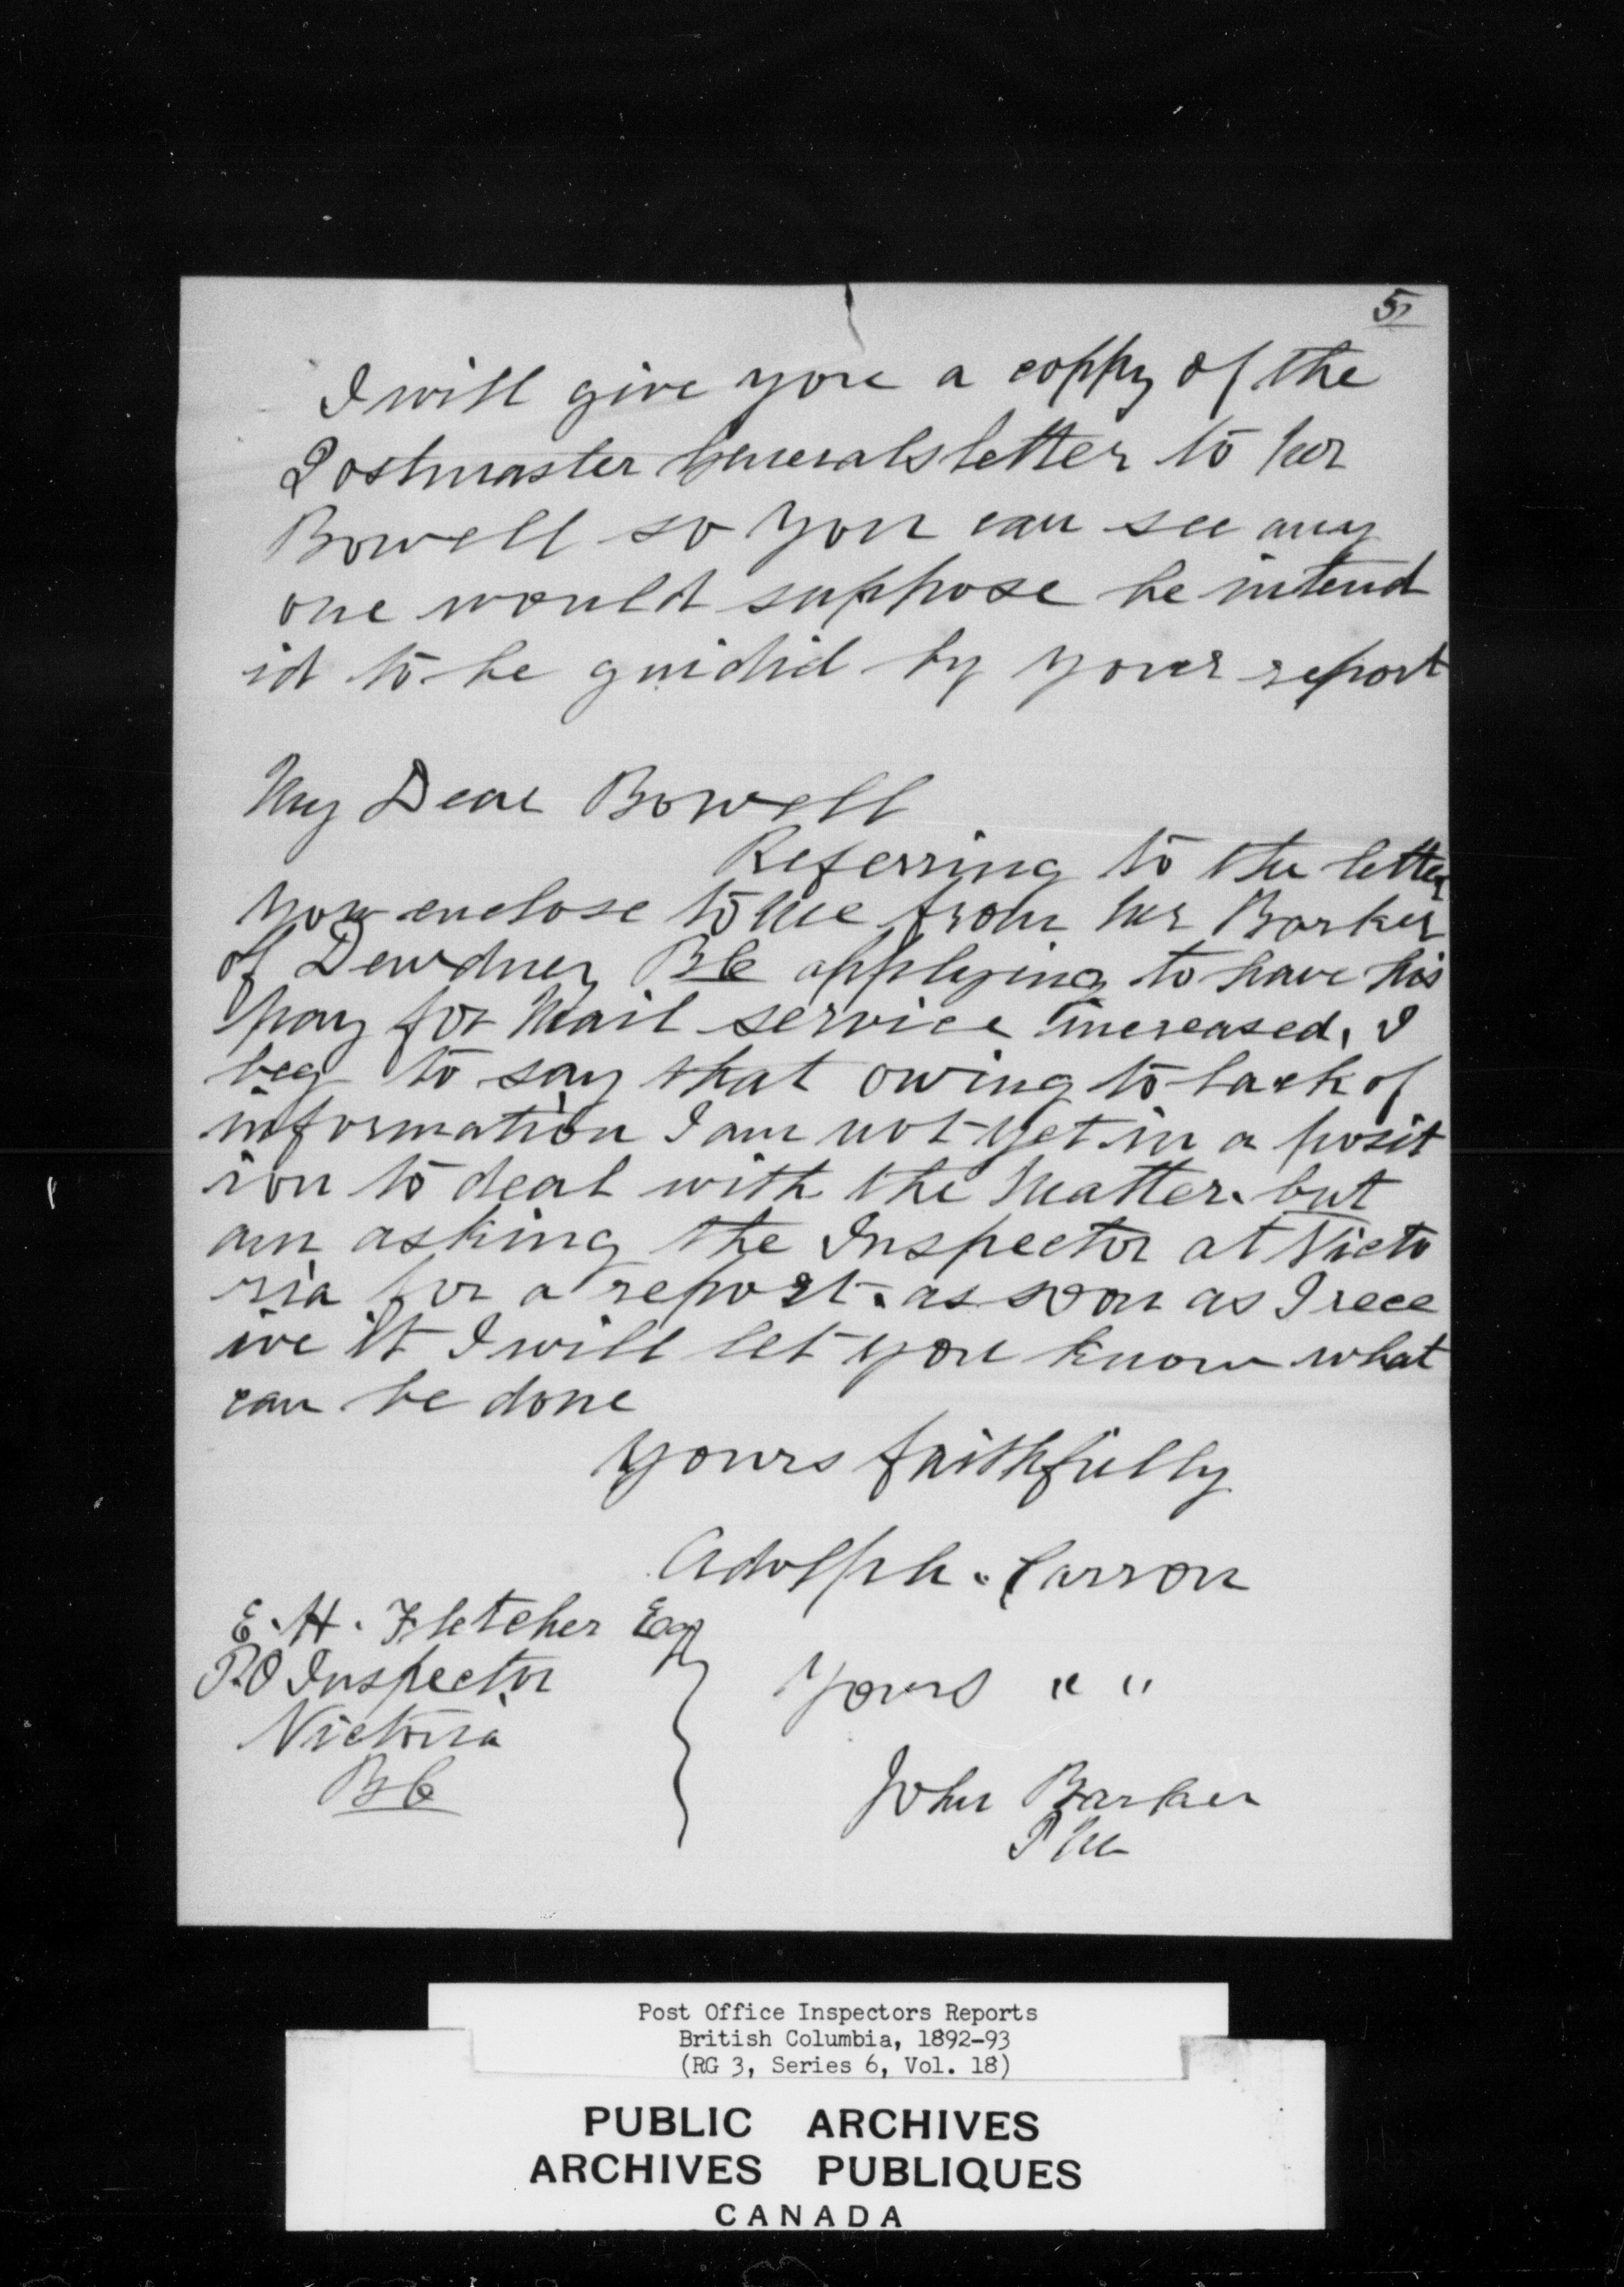 5)
I will give you a coppy of the
Postmaster Generals letter to Mr
Bowell so you can see any
one would suppose he intend
id to be guidid by your report
My Dear Bowell
Referring to the letter
you enclose to me from Mr Barker
of Dewdney BC applying to have his
pay for Mail service increased, I
beg to say that owing to lack of
information I am not yet in a posit
ion to deal with the Matter. but
am asking the Inspector at Victo
ria for a report. as soon as I rece
ive it I will let you know what
can be done
Yours faithfully
Adolph. Carron
E. H. Fletcher Esq
P.O Inspector
Victoria
BC
Yours " "
John Barker
PM
Post Office Inspectors Reports
British Columbia, 1892-93
(RG 3, Series 6, Vol. 18)
PUBLIC ARCHIVES
ARCHIVES PUBLIQUES
CANADA